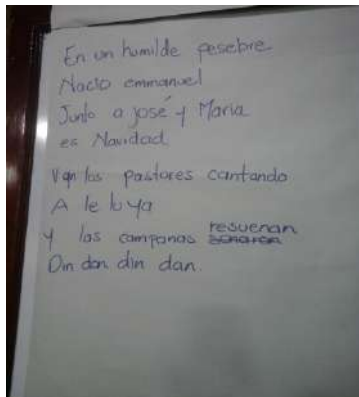 En un humilde pesebre
Nacio emmanuel
Junto a josé y Maria
es Navidad
Van los pastores cantando
A le lu ya
y las campanas resuenan
Din dan din dan.